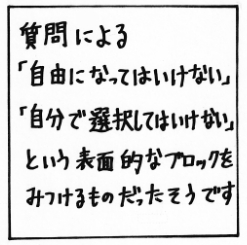 質問による
「自由になってはいけない」
「自分で選択してはいけない」
という表面的なブロックを
みつけるものだったそうです